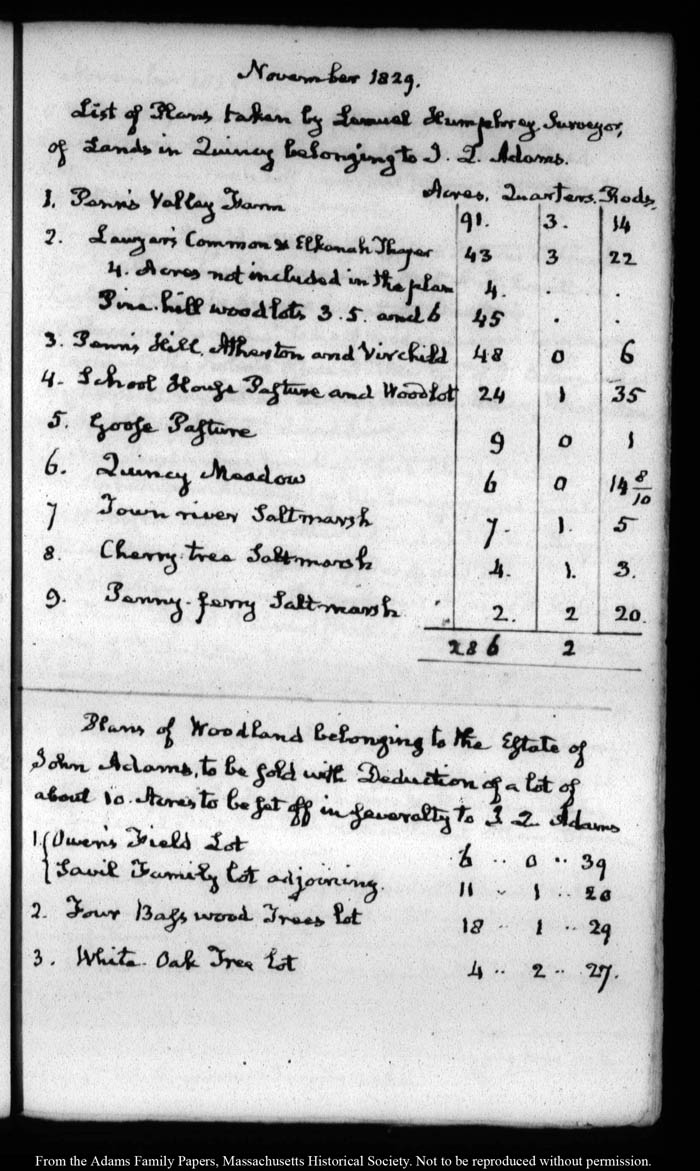 November 1829.
List of Plans taken by Lemuel Humphrey. Surveyor,
of Lands in Quincy belonging to J. Q. Adams.
Acres. Quarters. Rods.
1. Penn's Valley Farm 91. 3. 14
2. Lawyer's Common & Elkanah Thayer 43 3 22
4. Acres not included in the plan 4. . .
Pine-hill wood lots 3. 5. and 6 45 . .
3. Penn's Hill, Atherton and Virchild 48 0 6
4. School House Pasture and Woodlot 24 1 35
5. Goose Pasture 9 0 1
6. Quincy Meadow 6 0 14 8/10
7 Town river Saltmarsh 7. 1. 5
8. Cherry-tree Saltmarsh 4. 1. 3.
9. Penny-ferry Saltmarsh 2. 2 20.
286 2
Plans of Woodland belonging to the Estate of
John Adams, to be sold with Deduction of a lot of
about 10. Acres to be set off in severalty to J. Q. Adams
1. { Owen's Field Lot 6 .. 0 .. 39
{ Savil Family lot adjoining. 11 .. 1 .. 20
2. Four Bass wood Trees lot 18 .. 1 .. 29
3. White-Oak Tree Lot 4 .. 2 .. 27.
From the Adams Family Papers, Massachusetts Historical Society. Not to be reproduced without permission.